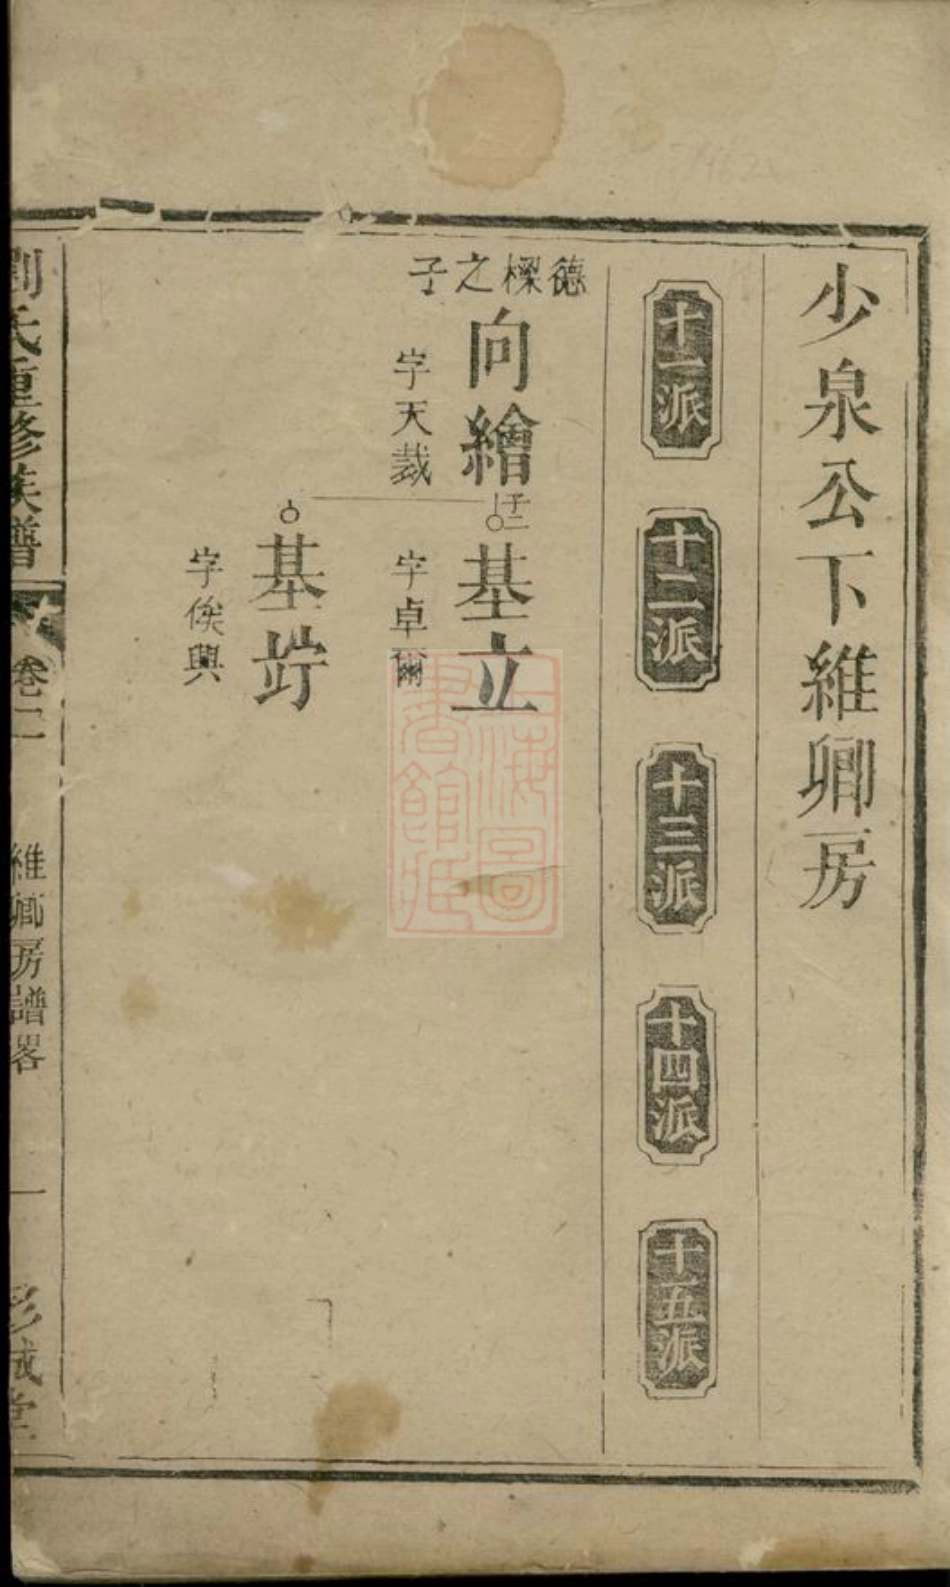 少泉公下維卿房
十一派
十二派
十三派
十四派
十五派
德樑之子
向繪
字天裁
子二
基立
字卓爾
基竚
字俟興
劉氏重修族譜
卷二
維卿房譜畧
一
彭城堂
上海圖書館藏